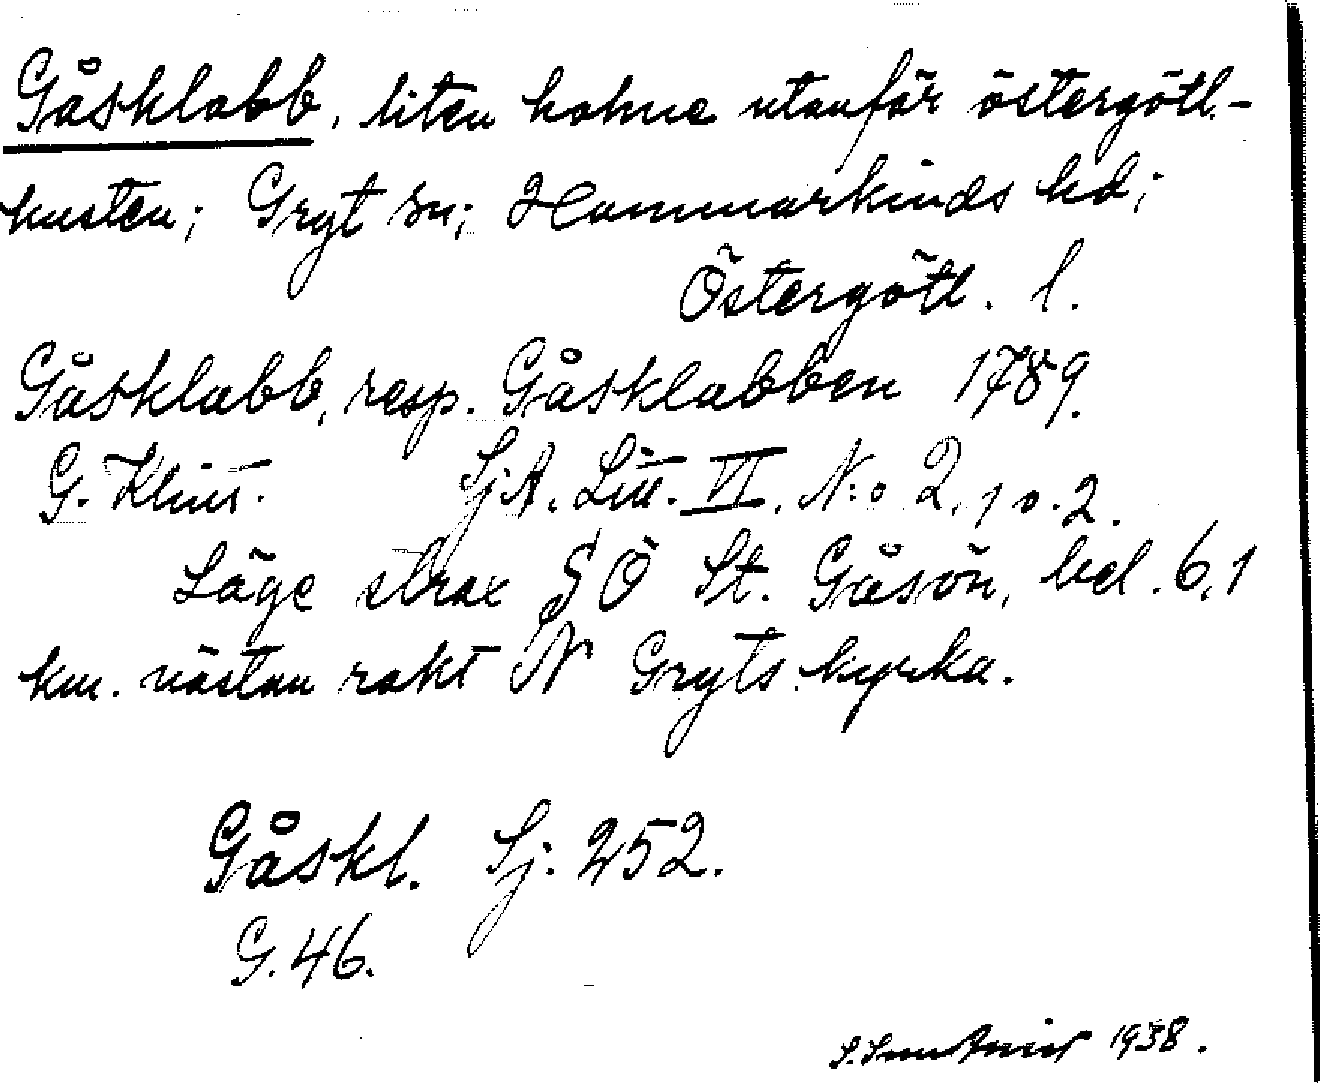 Gåsklabb, liten holme utanför östergötl.-
kusten; Gryt sn; Hammarkinds hd;
Östergötl. l.
Gåsklabb, resp. Gåsklabben 1789.
G. Klint. Sj.A. Litt. VI. N:o 2, 1 o. 2.
Läge strax SÖ St. Gåsön, bel. 6,1
km. nästan rakt N Gryts kyrka.
Gåskl. Sj. 252.
G. 46.
1938.